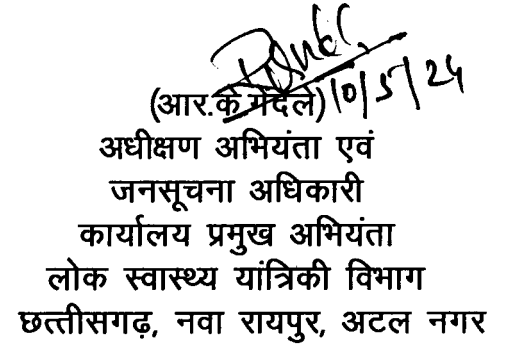 10/5/24
(आर.के.गंदेले)
अधीक्षण अभियंता एवं
जनसूचना अधिकारी
कार्यालय प्रमुख अभियंता
लोक स्वास्थ्य यांत्रिकी विभाग
छत्तीसगढ़, नवा रायपुर, अटल नगर